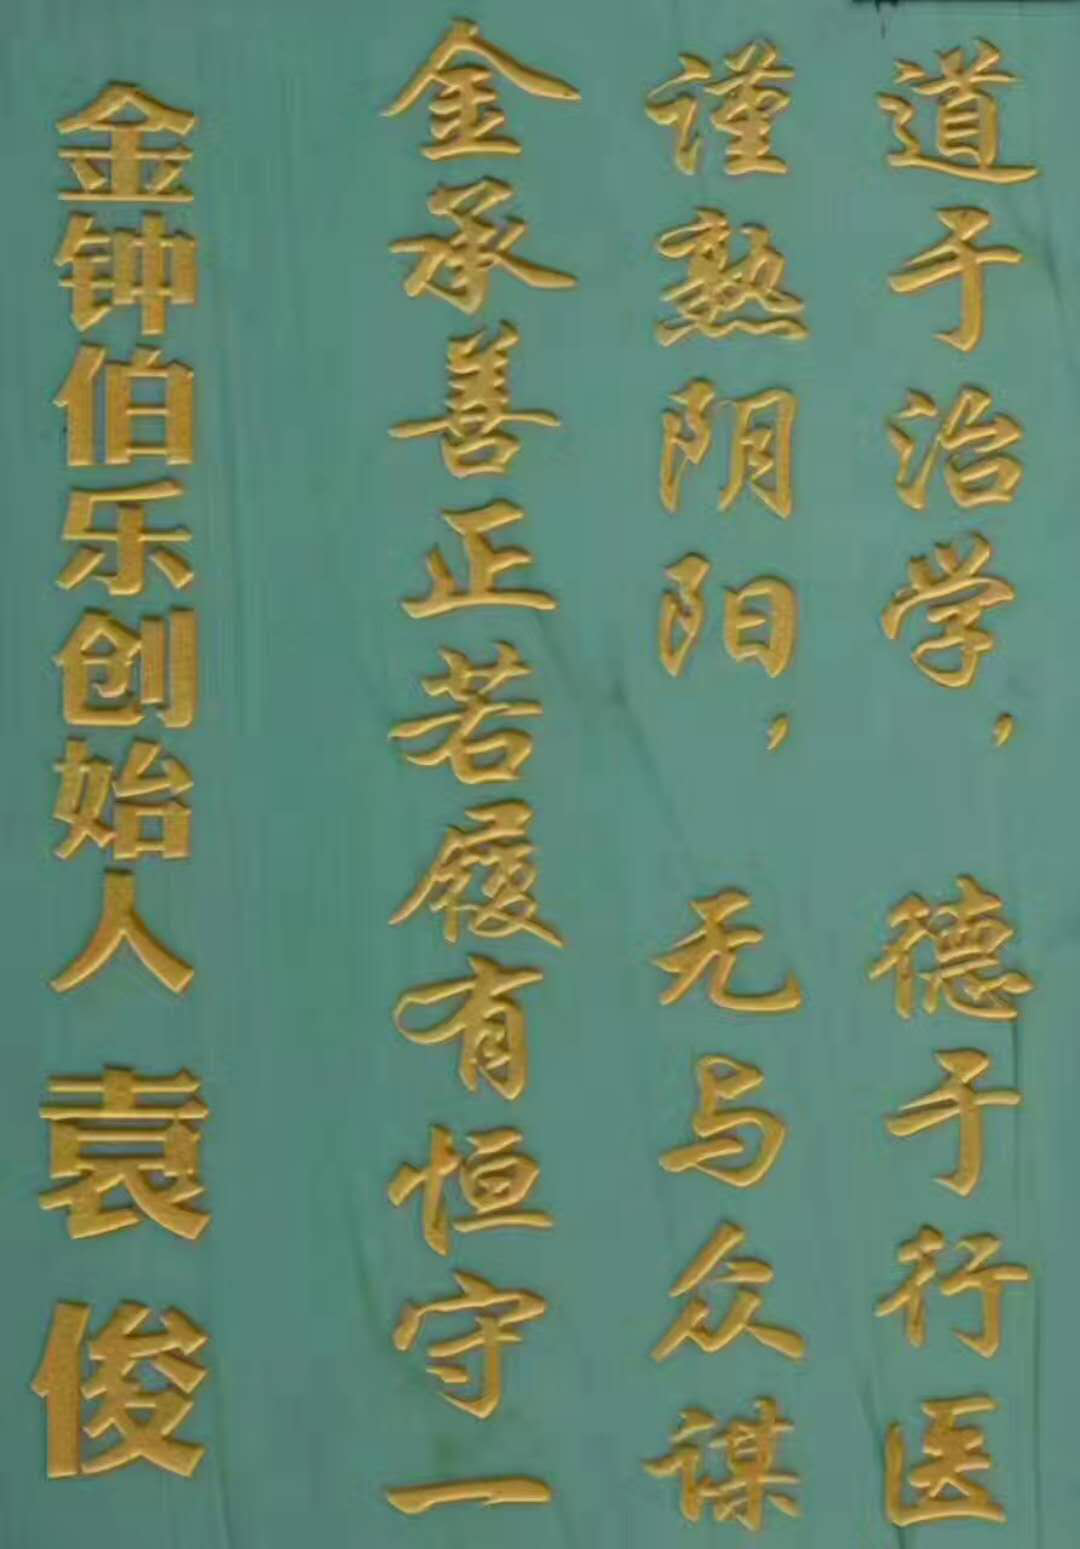 道于治学，德于行医
谨熟阴阳，无与众谋
金承善正若履有恒守一
金钟伯乐创始人 袁俊